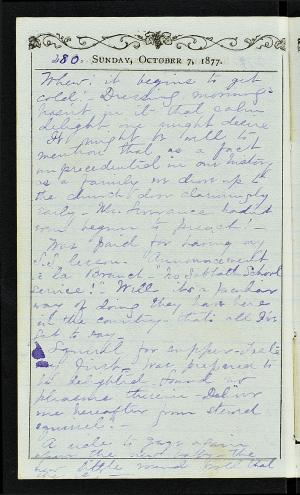 280. SUNDAY, OCTOBER 7, 1877.
Whew! it begins to get
cold! Dressing mornings
hasn't in it that calm
delight one might desire
It might be well to
mention that as a fact
unprecedented in our history
as a family we drew up to
the church door alarmingly
early - Mr. hadn't
even begun to preach! -
Was paid for having my
S.S. lesson. Announcement
a la Branch - "No Sabbath School
service!" - Well its a peculiar
way of doing they have here
in the country - that's all I've
got to say.
Squirrel for supper - Taste
my first - I was prepared to
be delighted - found no
pleasure therein - Deliver
me hereafter from stewed
squirrel! -
A ride to again
upon the
little round that